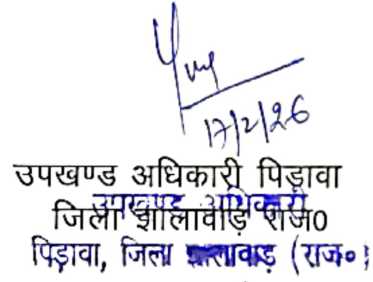 17/2/26
उपखण्ड अधिकारी पिड़ावा
जिला झालावाड़ राज0
उपखण्ड अधिकारी
पिड़ावा, जिला झालावाड़ (राज०)